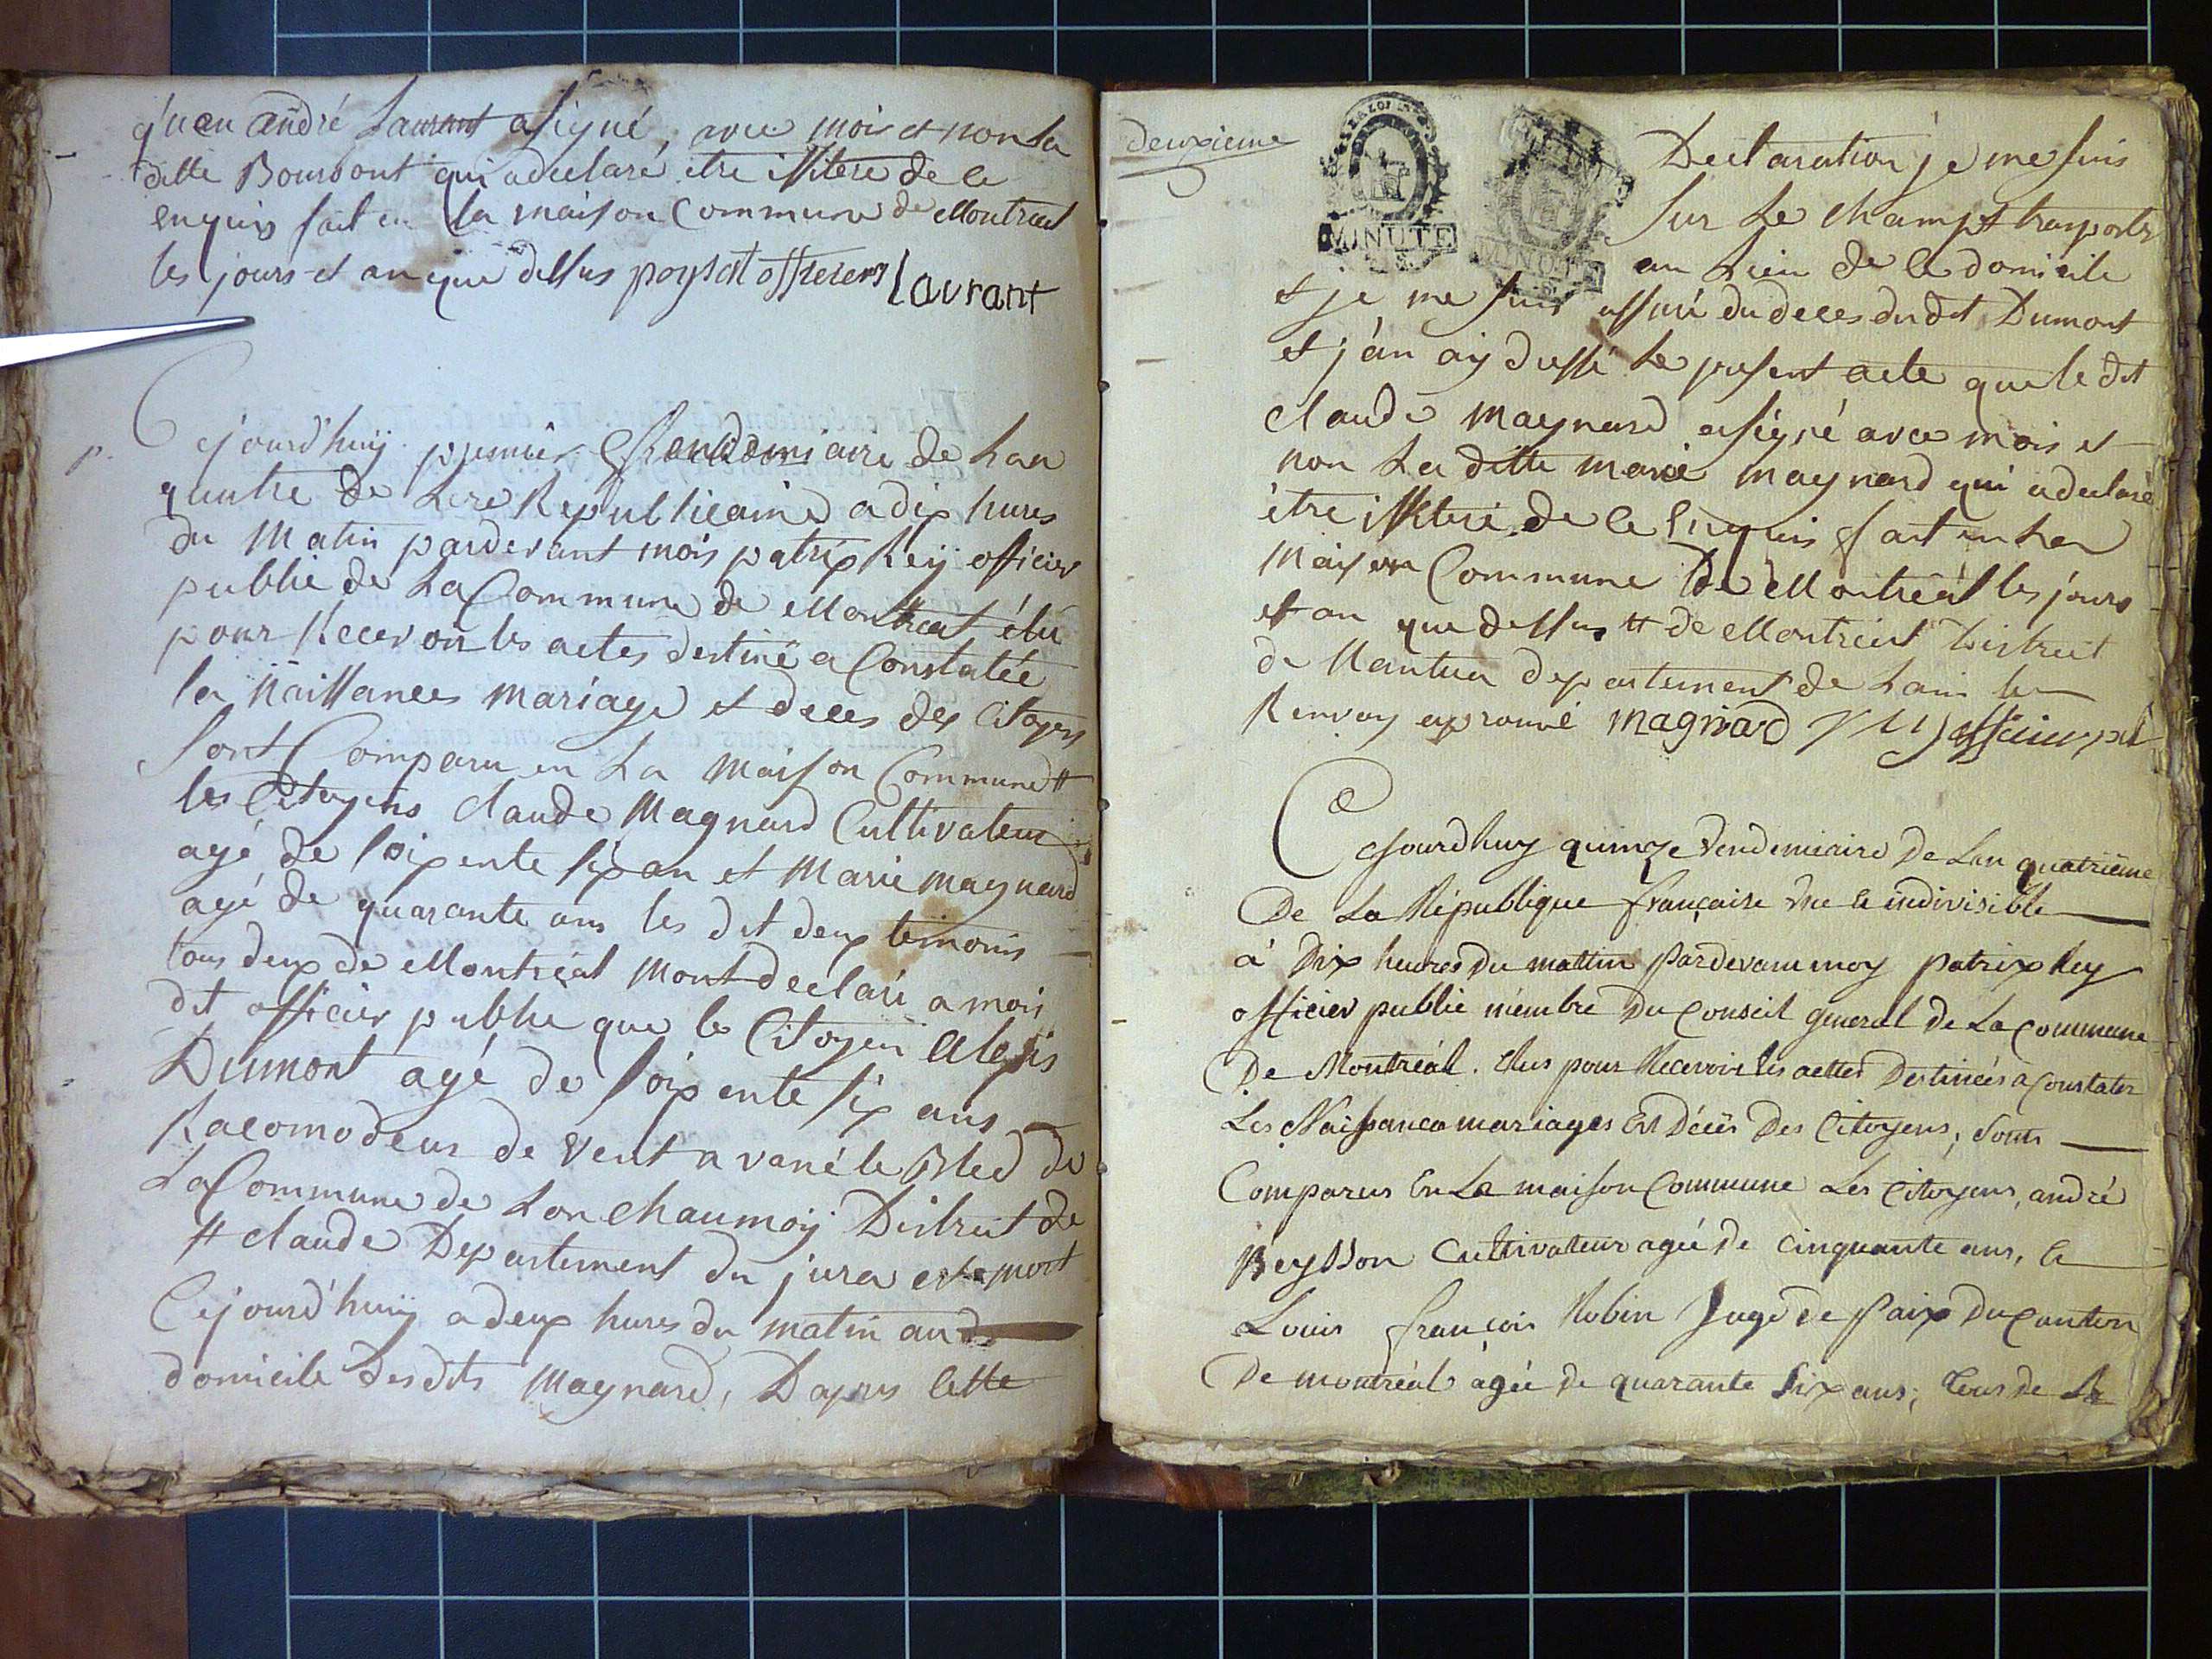 qu'en andré Laurant a signé, avec mois et non la
ditte Bourdont qui a déclaré être illitere de ce
enquis fait en la maison Commune de Montreal
les jours et an que dessus officier Laurant
p. Cejourd'huij premier Vendemiaire de Lan
quatre de Lere Republicaine a dix hures
du Matin pardevant mois patrix Reij officier
public de La Commune de Montreal élu
pour Recevoir les actes destiné a Constatée
la Naissances mariage et deces des Citoyens
Sont Comparu en La Maison Commune #
les Citoyens Claude Magnard Cultivateur
agé de soixente six an et Marie maynard
agé de quarante ans les dit deux temoins
tous deux de Montreal mont declaré a mois
dit officier public que le Citoyen Alexis
Dumont agé de soixente six ans
Racomodeur de Vent a vané le Bled de
La Commune de Lonchaumoij District de
# Claude Departement du jura est mort
Cejourd'huij a deux hures du matin au
domicile desdits Maynard, Dapres cette
deuxieme
LA LOI
MINUTE
MINUTE
Declaration je me suis
sur Le Champt trasporté
au Lieu de ce domicile
et je me suis assuré du deces dudit Dumont
et j'an aij dressé Le present acte que le dit
Claude Maynard a signé avec mois et
non La ditte marie maynard qui a declaré
être illiteré de ce Enquis fait en La
Maison Commune De Montréal les jours
et an que dessus # de Montreal District
de Nantua departement de Lain le
Renvoy aprouvé magnard Rey officier pub
Cejourdhuy quinze Vendemiaire De Lan quatrieme
De La République française Une & indivisible
à Dix heures Du mattin Pardevant moy Patrix Rey
officier public membre Du Conseil general de La commune
De Montréal. Elus pour Recevoir les acttes Destinées a Constater
Les Naissance mariages Et Décès Des Citoyens, Sonts
Comparus En La maison Commune Les Citoyens, andré
Beysson Cultivateur agée De Cinquante ans, &
Louis françois Robin Juge De Paix Du Canton
De montréal agée De quarante Six ans, tous De La